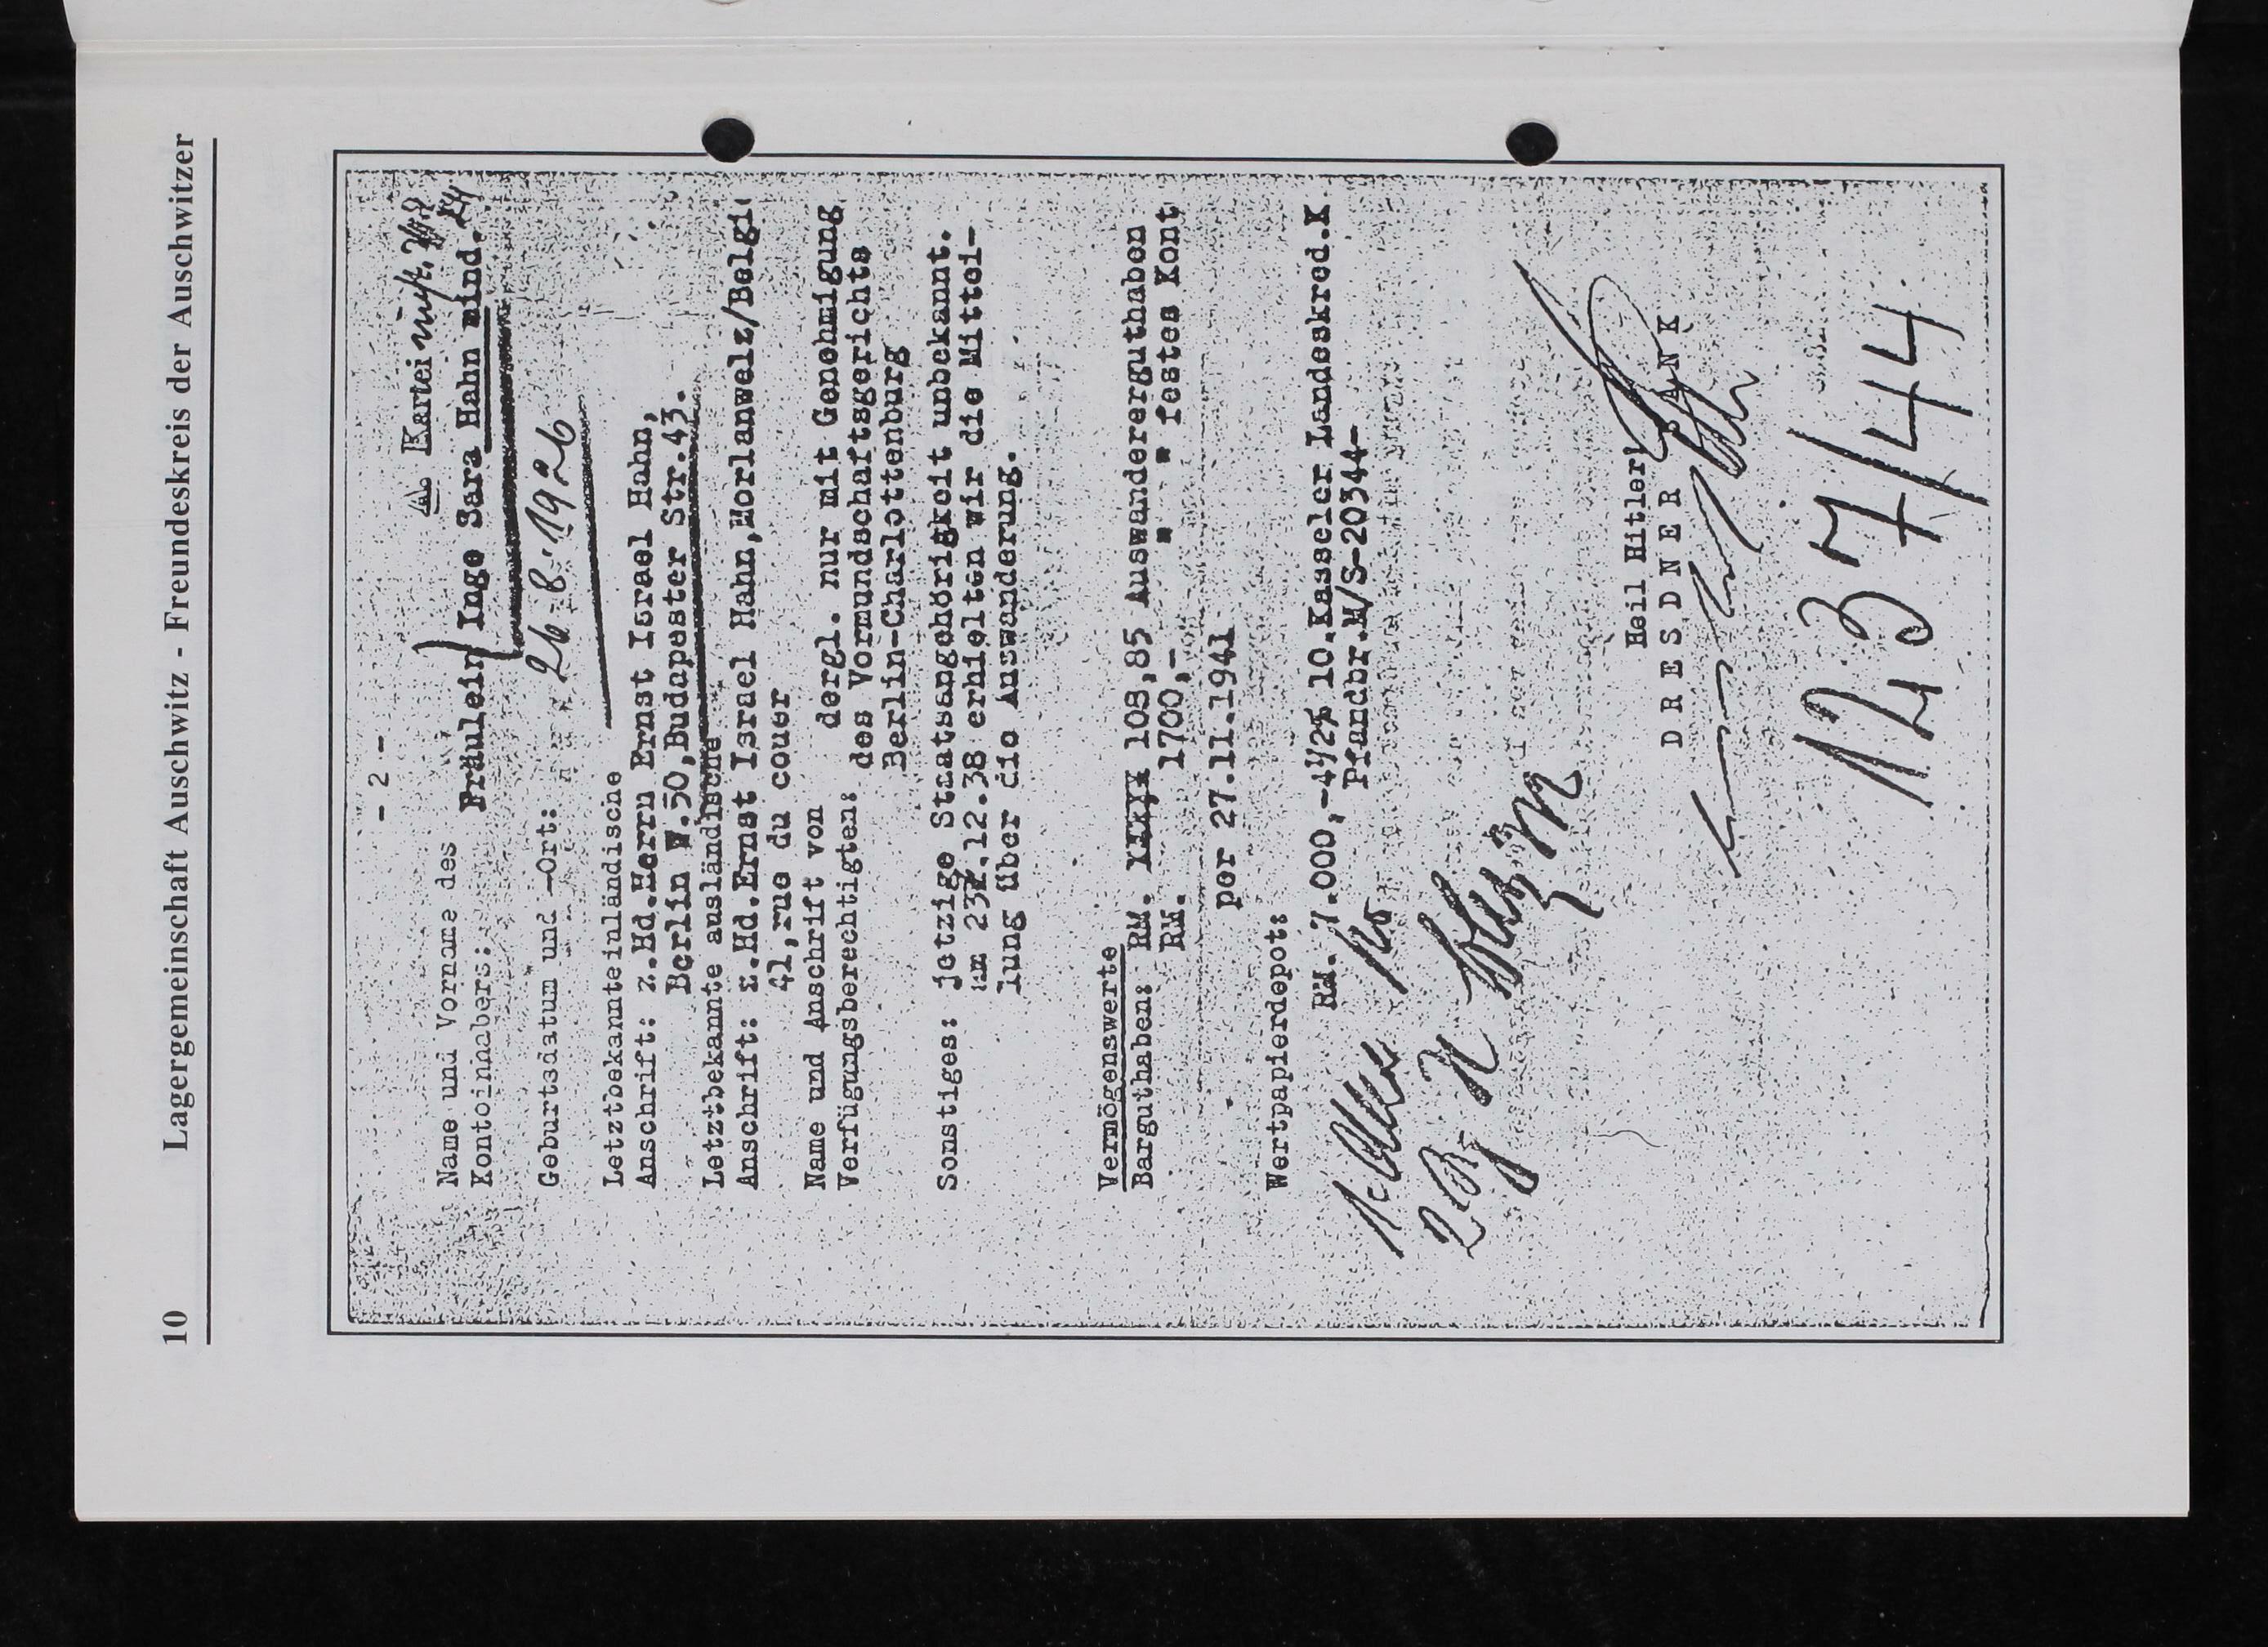 10 Lagergemeinschaft Auschwitz - Freundeskreis der Auschwitzer
- 2 -
Kartei
Name und Vorname des
Kontoinhabers: Fräulein} Inge Sara Hahn mind.
Geburtsdatum und -Ort: 26.8.1926
Letztbekannte inländische
Anschrift: z.Hd.Herrn Ernst Israel Hahn,
Berlin W.50,Budapester Str.43.
Letztbekannte ausländische
Anschrift: z.Hd.Ernst Israel Hahn,Morlanwelz/Belgi
41,rue du couer
Name und Anschrift von dergl. nur mit Genehmigung
Verfügungsberechtigten: des Vormundschaftsgerichts
Berlin-Charlottenburg
Sonstiges: jetzige Staatsangehörigkeit unbekannt.
am 23.12.38 erhielten wir die Mittei-
lung über die Auswanderung.
Vermögenswerte
Barguthaben: RM. 108,85 Auswandererguthaben
RM. 1700,- " " festes Kont
per 27.11.1941
Wertpapierdepot:
RM. 7.000,-4½% 10.Kasseler Landeskred.K
Pfandbr.M/S-20344-
Heil Hitler!
DRESDNER BANK
1237/44